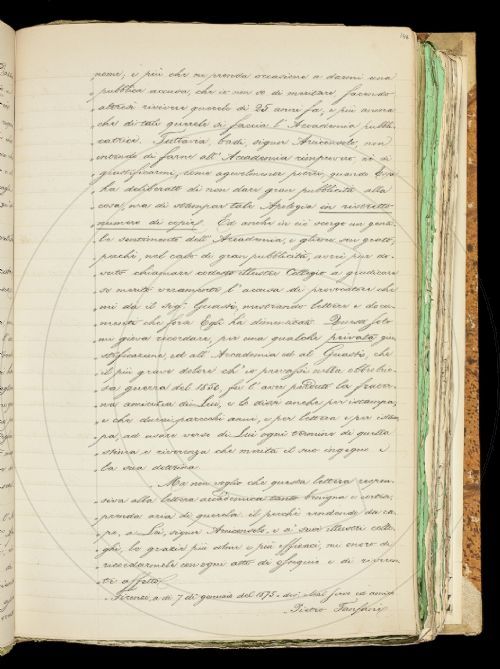 nome, e più che ne prenda occasione a darmi una
pubblica accusa, che io non so di meritare facendo
altresì rivivere querele di 25 anni fa, e più ancora
che di tale querele si faccia l'Accademia pubbli-
catrice. Tuttavia badi, signor Arciconsolo, non
intendo di farne all'Accademia rimprovero nè di
giustificarmi, come agevolmente potrei, quando Ella
ha deliberato di non dare gran pubblicità alla
cosa, ma di stampar tale Apologia in ristretto
numero di copie. Ed anche in ciò scorgo un genti-
le sentimento dell'Accademia, e gliene son grato,
perchè, nel caso di gran pubblicità, avrei pur do-
vuto chiamare codesto illustre Collegio a giudicare
se merito veramente l'accusa di provocatore che
mi dà il sig. Guasti, mostrando lettere e docu-
menti che forse Egli ha dimenticati. Questo solo
mi giova ricordare, per una qualche privata giu-
stificazione, ed all'Accademia ed al Guasti, che
il più grave dolore ch'io provassi nella obbrobrio-
sa guerra del 1856 fu l'aver perduto la
amicizia di Lui, e lo dissi anche per istampa,
e che durai parecchi anni, e per lettera e per istam-
pa, ad usare verso di Lui ogni termine di quella
stima e riverenza che merita il suo ingegno e
la sua dottrina.
Ma non voglio che questa lettera respon-
siva alla lettera accademica tanto benigna e cortese,
prenda aria di querela: il perchè rendendo da ca-
po, a Lei, signor Arciconsolo, e a' suoi illustri colle-
ghi, le grazie più calme e più efficaci, mi onoro di
ricordarmele con ogni atto di ossequio e di riveren-
te affetto.
Firenze, a dì 7 di gennaio del 1875. dev. servo ed amico
Pietro Fanfani